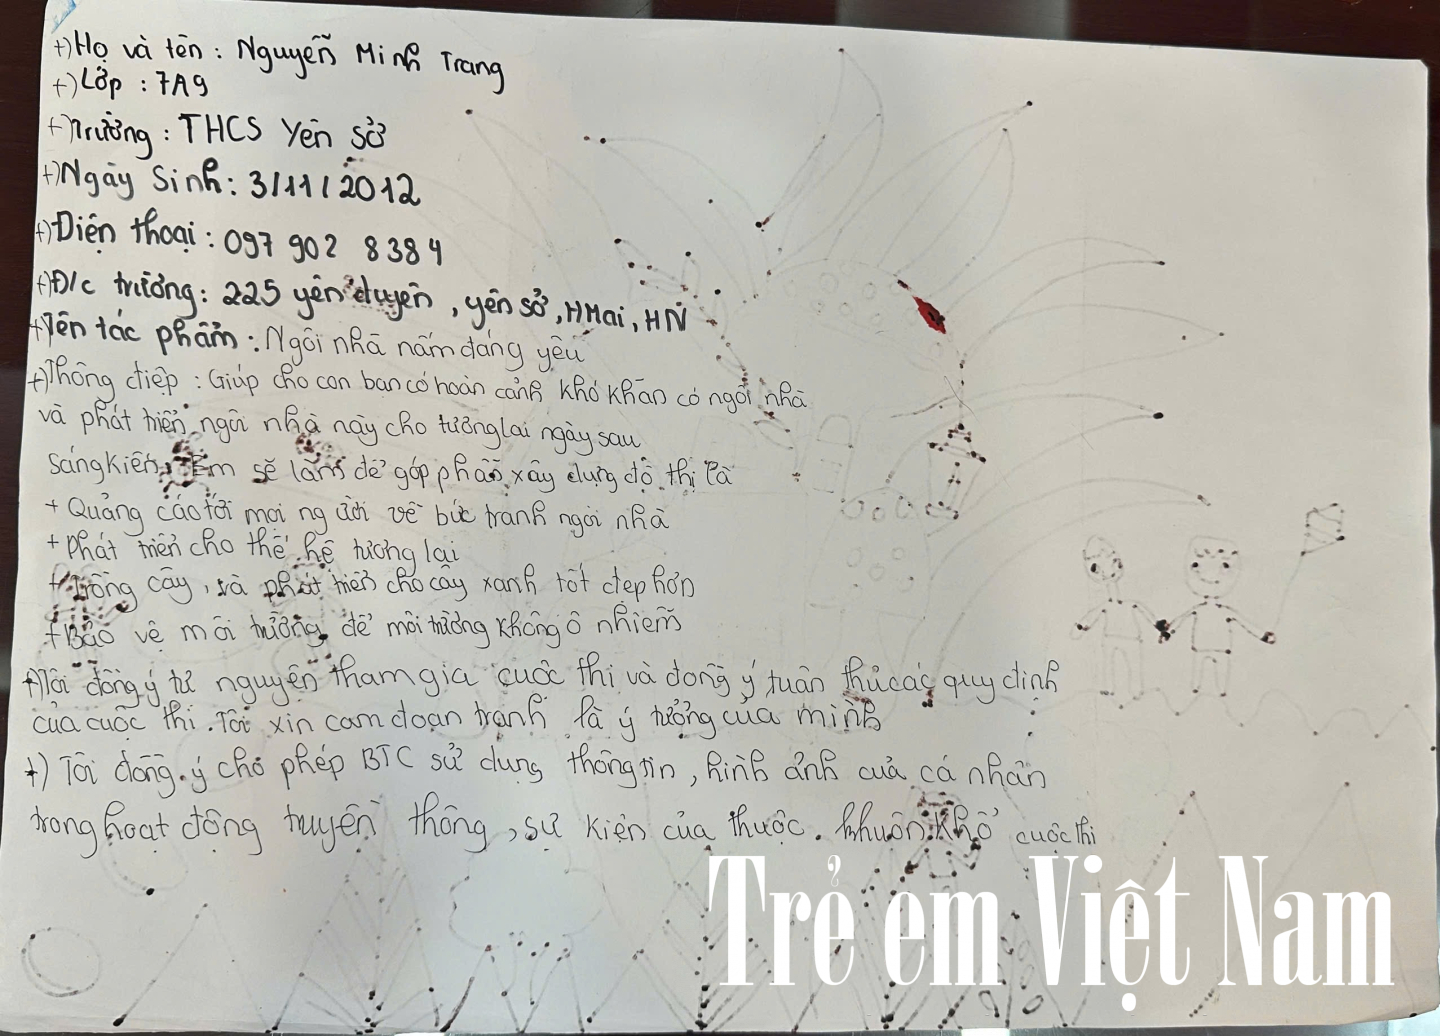 +) Họ và tên : Nguyễn Minh Trang
+) Lớp : 7A9
+) Trường : THCS Yên Sở
+) Ngày Sinh : 3/11/2012
+) Điện thoại : 097 902 8384
+) Đ/c trường : 225 yên duyên , yên sở , HMai , HN
+ Tên tác phẩm : Ngôi nhà nấm đáng yêu
+) Thông điệp : Giúp cho con bạn có hoàn cảnh khó khăn có ngôi nhà
và phát triển ngôi nhà này cho tương lai ngày sau
sáng kiến Em sẽ làm để góp phần xây dựng đô thị là
+ Quảng cáo tới mọi người về bức tranh ngôi nhà
+ Phát triển cho thế hệ tương lai
+ Trồng cây , và phát triển cho cây xanh tốt đẹp hơn
+ Bảo vệ môi trường để môi trường không ô nhiễm
+) Tôi đồng ý tự nguyện tham gia cuộc thi và đồng ý tuân thủ các quy định
của cuộc thi . Tôi xin cam đoan tranh là ý tưởng của mình
+) Tôi đồng ý cho phép BTC sử dụng thông tin , hình ảnh của cá nhân
trong hoạt động truyền thông , sự kiện của thuộc . khuôn khổ cuộc thi
Trẻ em Việt Nam